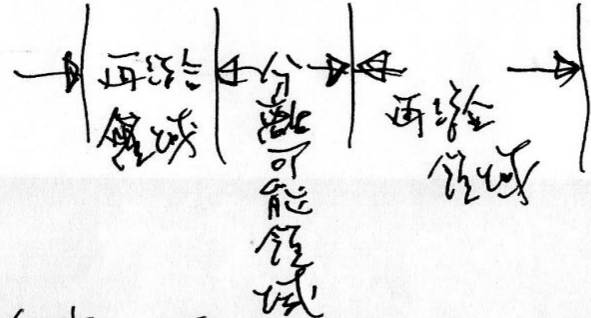 再結合
領域
分離可能領域
再結合
領域